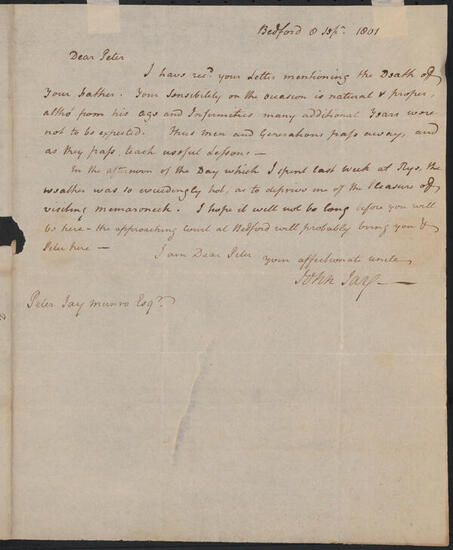 Bedford 8 Sepr. 1801
Dear Peter
I have recd. your Letter mentioning the Death of
Your Father. Your Sensibility on the occasion is natural & proper,
altho' from his Age and Infirmities many additional Years were
not to be expected. Thus men and Generations pass away, and
as they pass, teach useful Lessons —
In the afternoon of the Day which I spent last week at Rye, the
weather was so exceedingly hot, as to deprive me of the Pleasure of
visiting Mamaroneck. I hope it will not be long before you will
be here — the approaching court at Bedford will probably bring you &
Peter here —
I am Dear Peter your affectionate uncle
John Jay —
Peter Jay Munro Esqr.